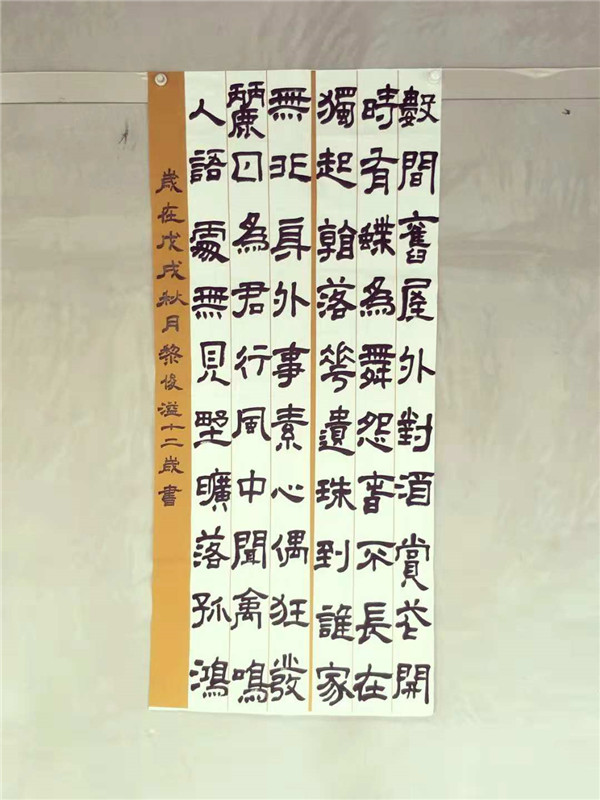 數間舊屋外對酒賞花開
時有蝶為舞怨春不長在
獨起翰落花遺珠到誰家
無非身外事素心偶狂發
麗日為君行風中聞禽鳴
人語處無見野曠落孤鴻
歲在戊戌秋月黎俊溢十二歲書